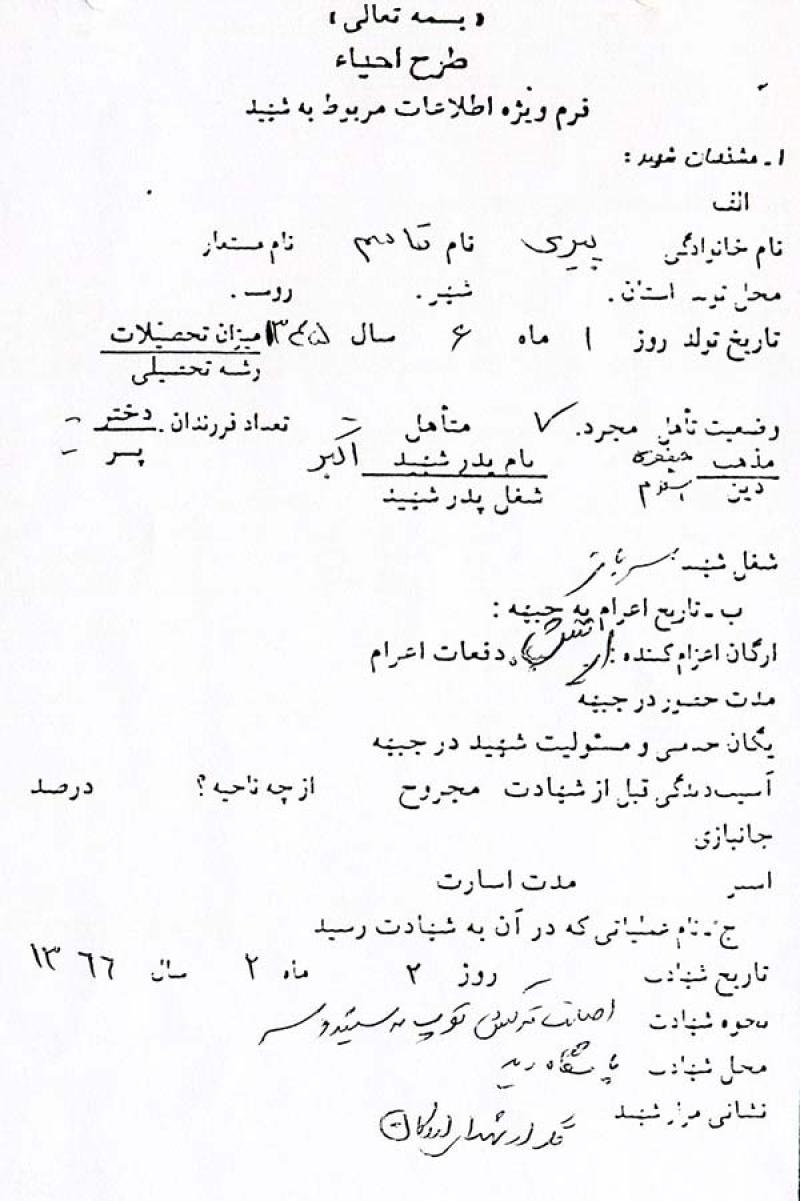 « بسمه تعالی »
طرح احیاء
فرم ویژه اطلاعات مربوط به شهید
۱ـ مشخصات شهید :
الف
نام خانوادگی پیری نام قاسم نام مستعار
محل تولد استان . شهر . روستا .
تاریخ تولد روز ۱ ماه ۶ سال ۱۳۴۵ میزان تحصیلات
رشته تحصیلی
وضعیت تأهل مجرد . ✓ متأهل - تعداد فرزندان . دختر -
مذهب جعفری نام پدر شهید اکبر پسر -
دین اسلام شغل پدر شهید
شغل شهید سرباز
ب ـ تاریخ اعزام به جبهه :
ارگان اعزام کننده : ارتش سپاه دفعات اعزام
مدت حضور در جبهه
یگان خدمتی و مسئولیت شهید در جبهه
آسیب‌دیدگی قبل از شهادت مجروح از چه ناحیه ؟ درصد
جانبازی
اسیر مدت اسارت
ج ـ نام عملیاتی که در آن به شهادت رسید
تاریخ شهادت روز ۲ ماه ۲ سال ۱۳۶۶
نحوه شهادت اصابت ترکش توپ به سینه و سر
محل شهادت پاسگاه زید
نشانی مزار شهید گلزار شهدای اردکان